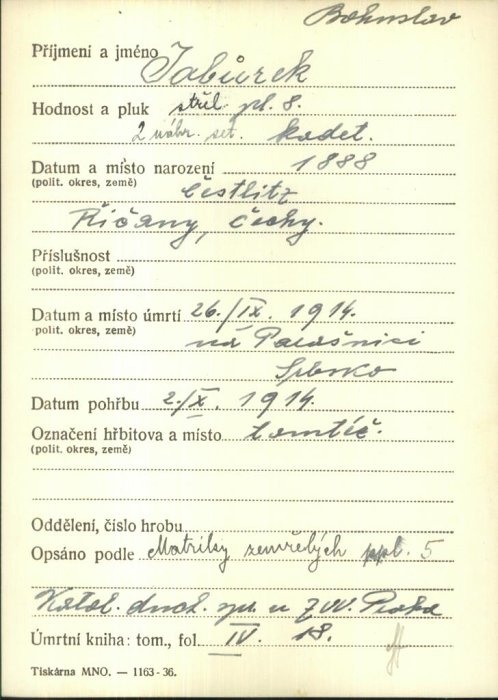 Bohuslav
Příjmení a jméno Jabůrek
Hodnost a pluk stříl. pl. 8.
2 náhr. set. kadet.
Datum a místo narození 1888
(polit. okres, země) Čestlitz
Říčany, Čechy.
Příslušnost
(polit. okres, země)
Datum a místo úmrtí 26./IX. 1914.
polit. okres, země) na
Datum pohřbu 2./X. 1914.
Označení hřbitova a místo tamtéž.
(polit. okres, země)
Oddělení, číslo hrobu
Opsáno podle Matriky zemřelých ppl. 5
Katol. duch. spr. u ZVV. Praha
Úmrtní kniha: tom., fol. IV. 18.
Tiskárna MNO. — 1163-36.